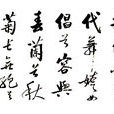 代舞姱女
倡兮容與
春蘭兮秋
菊長無絕